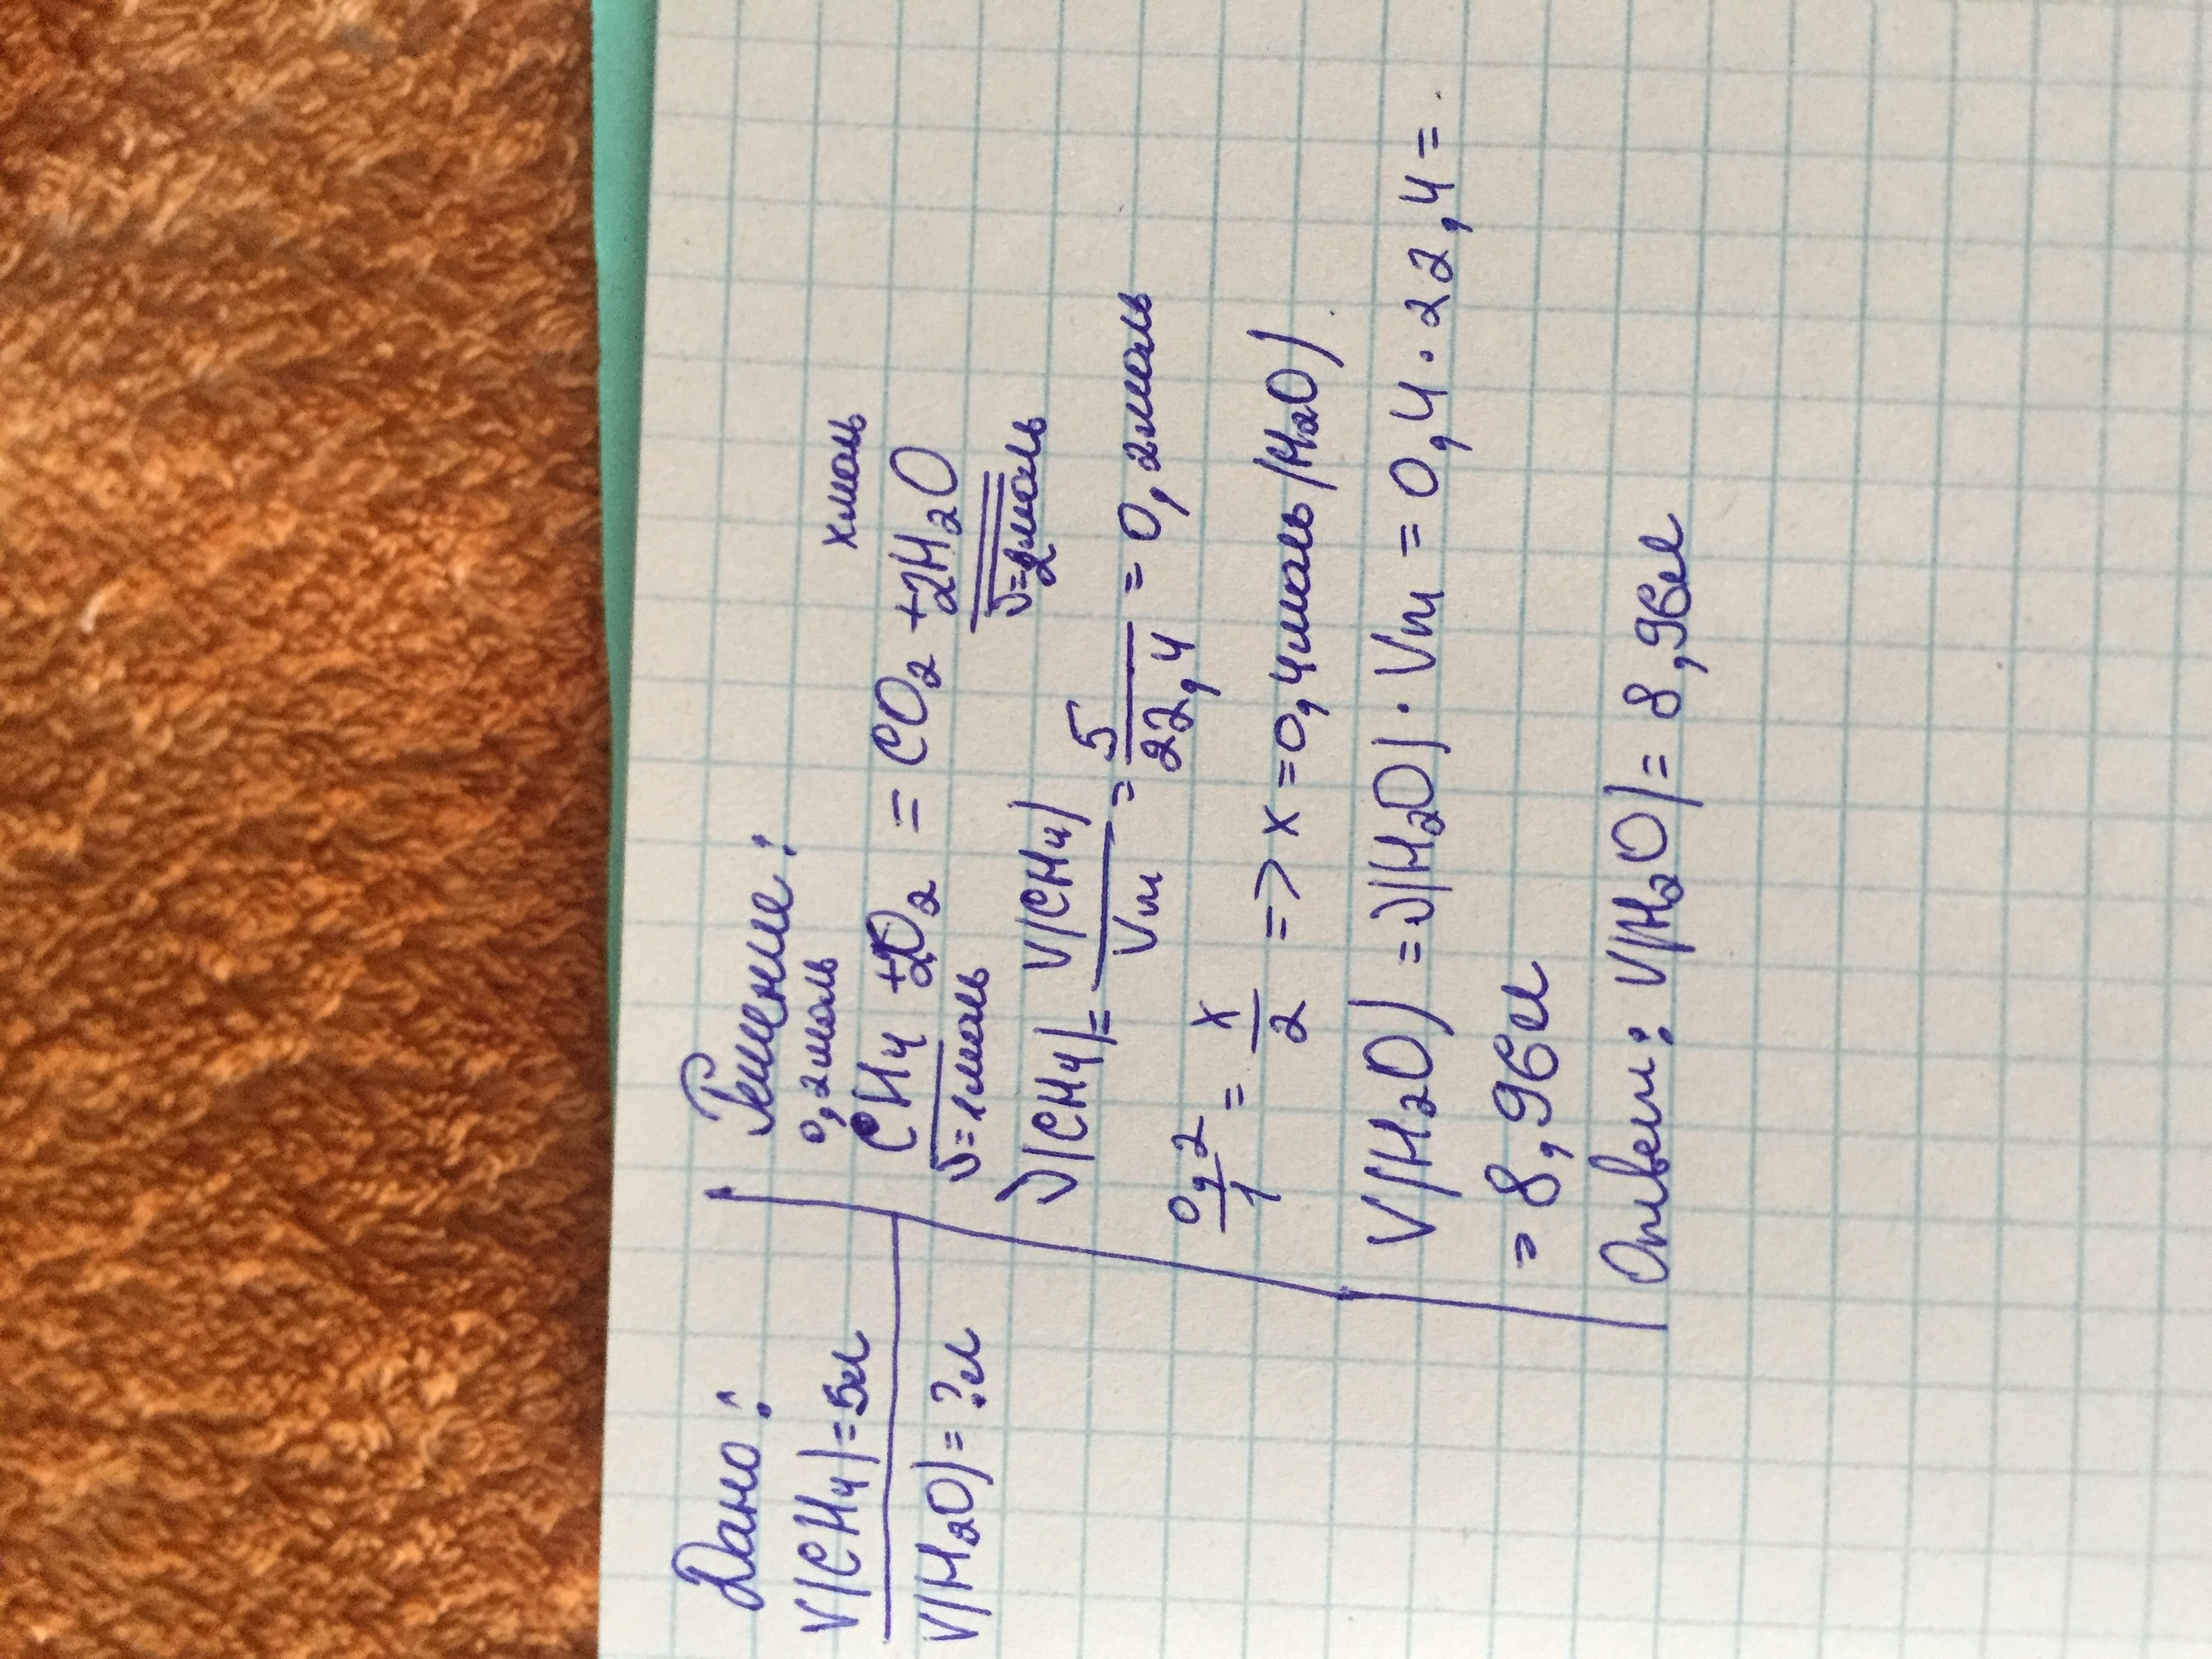 Дано:
V(CH₄)=5л
V(H₂O)=?л
Решение:
0,2моль хмоль
CH₄ +2O₂ = CO₂ +2H₂O
ν=1моль ν=2моль
ν(CH₄)= V(CH₄)/Vм = 5/22,4 = 0,2моль
0,2/1 = x/2 => x=0,4моль(H₂O)
V(H₂O)=ν(H₂O)·Vм=0,4·22,4=
=8,96л
Ответ: V(H₂O)=8,96л